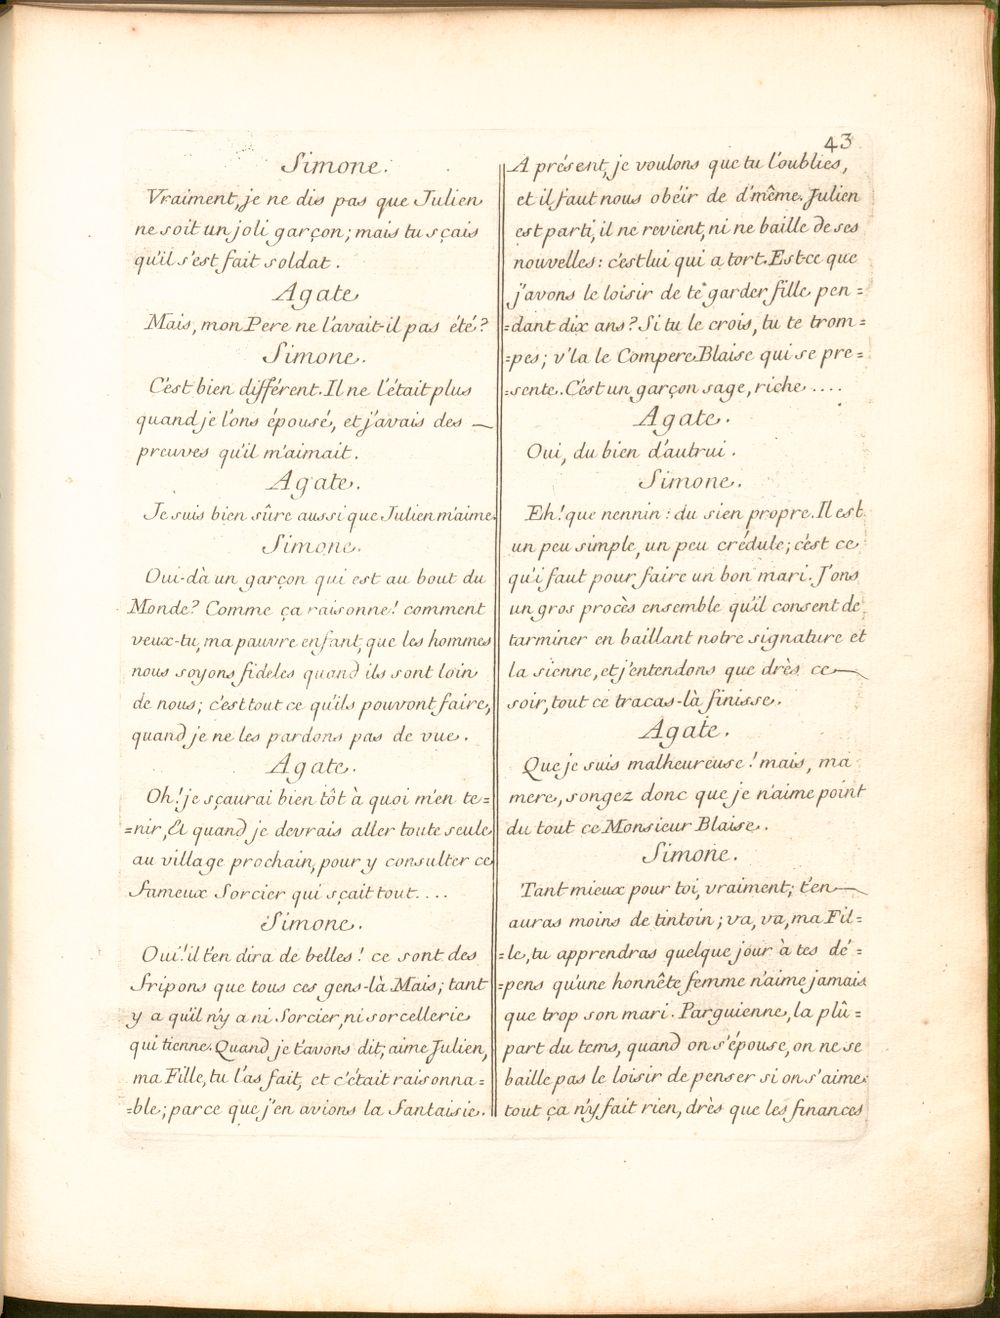 43
Simone.
Vraiment, je ne dis pas que Julien
ne soit un joli garçon; mais tu sçais
qu'il s'est fait soldat.
Agate
Mais, mon Pere ne l'avait-il pas été?
Simone.
C'est bien différent. Il ne l'était plus
quand je l'ons épousé, et j'avais des
preuves qu'il m'aimait.
Agate.
Je suis bien sûre aussi que Julien m'aime
Simone.
Oui-dà un garçon qui est au bout du
Monde? Comme ça raisonne! comment
veux-tu, ma pauvre enfant, que les hommes
nous soyons fideles quand ils sont loin
de nous; c'est tout ce qu'ils pouvont faire,
quand je ne les pardons pas de vue.
Agate.
Oh! je sçaurai bien tôt à quoi m'en te=
=nir, Et quand je devrais aller toute seule
au village prochain, pour y consulter ce
fameux Sorcier qui sçait tout....
Simone.
Oui! il t'en dira de belles! ce sont des
fripons que tous ces gens-là Mais; tant
y a qu'il n'y a ni Sorcier, ni sorcellerie
qui tienne. Quand je t'avons dit; aime Julien,
ma Fille, tu l'as fait, et c'était raisonna=
=ble; parce que j'en avions la fantaisie.
A présent, je voulons que tu l'oublies,
et il faut nous obéir de d'même. Julien
est parti, il ne revient, ni ne baille de ses
nouvelles: c'est lui qui a tort. Est-ce que
j'avons le loisir de te garder fille pen=
=dant dix ans? Si tu le crois, tu te trom=
=pes; v'la le Compere Blaise qui se pre=
=sente. C'est un garçon sage, riche....
Agate.
Oui, du bien d'autrui.
Simone.
Eh! que nennin: du sien propre. Il est
un peu simple, un peu crédule; c'est ce
qu'i faut pour faire un bon mari. J'ons
un gros procès ensemble qu'il consent de
tarminer en baillant notre signature et
la sienne, et j'entendons que drès ce
soir, tout ce tracas-là finisse.
Agate.
Que je suis malheureuse! mais, ma
mere, songez donc que je n'aime point
du tout ce Monsieur Blaise.
Simone.
Tant mieux pour toi, vraiment; t'en
auras moins de tintoin; va, va, ma Fil=
=le, tu apprendras quelque jour à tes dé=
=pens qu'une honnête femme n'aime jamais
que trop son mari. Parguienne, la plû=
part du tems, quand on s'épouse, on ne se
baille pas le loisir de penser si on s'aime
tout ça n'y fait rien, drès que les finances